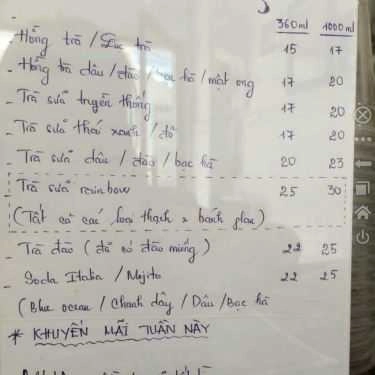 360ml 1000ml
- Hồng trà / Lục trà 15 17
- Hồng trà dâu / đào / bạc hà / mật ong 17 20
- Trà sữa truyền thống 17 20
- Trà sữa thái xanh / đỏ 17 20
- Trà sữa dâu / đào / bạc hà 20 23
- Trà sữa rainbow 25 30
(Tất cả các loại thạch + bánh plan)
- Trà đào (đã có đào miếng) 22 25
- Soda Italia / Mojito 22 25
(Blue ocean / Chanh dây / Dâu / Bạc hà
* KHUYẾN MÃI TUẦN NÀY